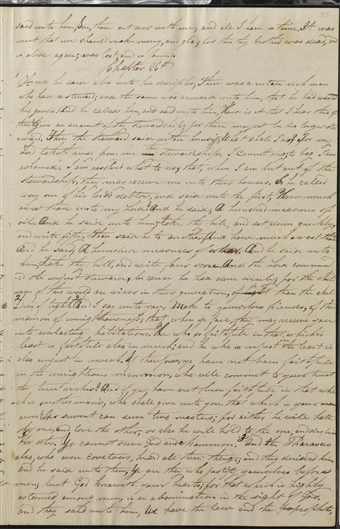 said unto him, Son, thou art ever with me, and all I have is thine. It was
meet that we should make merry, and be glad, for this thy brother was dead, and
is alive again; was lost, and is found.
Chapter 16th
And he said also unto his disciples, There was a certain rich man
who had a steward; and the same was accused unto him, that he had wasted
his goods. And he called him, and said unto him, How is it that I hear this of
thee? Give an account of thy stewardship; for thou mayest be no longer stew
ard. Then the steward said within himself, What shall I do? For my
lord taketh away from me the stewardship. I cannot dig; to beg I am
ashamed. I am resolved what to do, that, when I am put out of the
stewardship, they may receive me into their houses. So he called
every one of his lord's debtors, and said unto the first, How much
owest thou unto my lord? And he said, A hundred measures of
oil. And he said unto him, Take thy bill, and sit down quickly,
and write fifty. Then said he to another, And how much owest thou?
And he said, A hundred measures of wheat. And he said unto
him, Take thy bill, and write four score. And the lord commend
ed the unjust steward, because he had done wisely; for the chil
dren of this world are wiser in their generation, than the chil
dren of light. And I say unto you, Make to yourselves friends, of the
mammon of unrighteousness; that, when ye fail, they may receive you
into everlasting habitations. He who is faithful in that which is
least is faithful also in much; and he who is unjust in the least is
also unjust in much. If therefore ye have not been faithful
in the unrighteous mammon, who will commit to your trust
the true riches? And if ye have not been faithful in that which
is another man's, who shall give unto you that which is your
own? No servant can serve two masters; for either he will hate
the one, and love the other; or else he will hold to the one, and despise
the other. Ye cannot serve God and Mammon. And the Pharisees
also, who were covetous, heard all these things; and they derided him.
and he said unto them, Ye are they who justify yourselves before
men; but God knoweth your hearts; for that which is highly
esteemed among men, is an abomination in the sight of God.
and they said unto him, We have the law and the prophets;